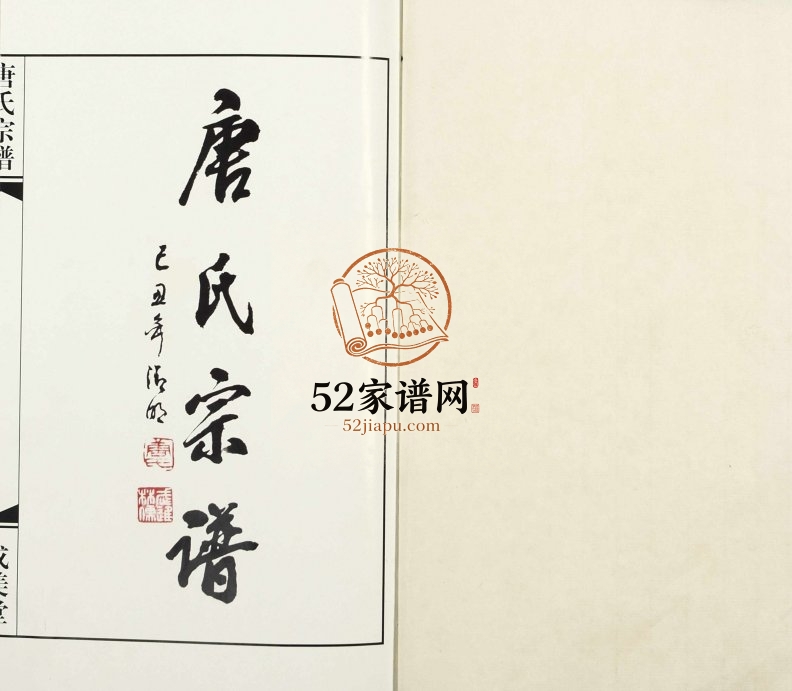 唐氏宗谱
己丑年清明
唐氏宗譜
成美堂
52家谱网
52jiapu.com